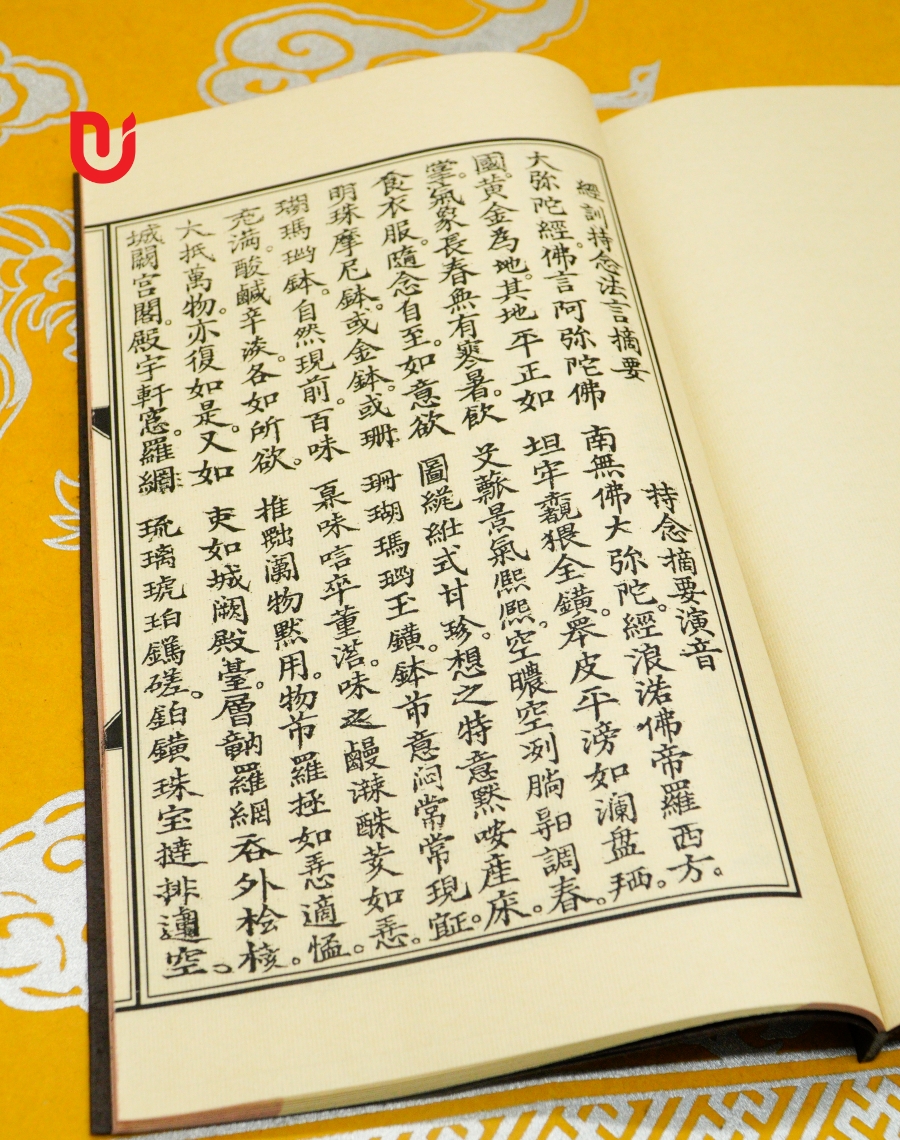 經訓持念法言摘要
大弥陀經。佛言阿弥陀佛
國。黃金為地。其地平正如
掌。氣象長春無有寒暑。飲
食衣服。隨念自至。如意欲
明珠摩尼鉢。或金鉢。或珊
瑚瑪瑙鉢。自然現前。百味
充滿。酸鹹辛淡。各如所欲。
大抵萬物。亦復如是。又如
城闕宮閣。殿宇軒窓。羅網
持念摘要演音
南無佛大弥陀。經浪渃佛帝羅西方。
坦牢猥全鐄。罘皮平滂如瀾盘
景氣熙熙。空曠空冽調春。
圖式甘珍。想之特意默唉産床。
珊瑚瑪瑙玉鐄。鉢芇意悶常常現
味唁卒董。味如
推物默用。物芇羅拯如適
吏如城闕殿臺。層羅網吞外桧
琉璃琥珀磋。鉑鐄珠宝撻排空。